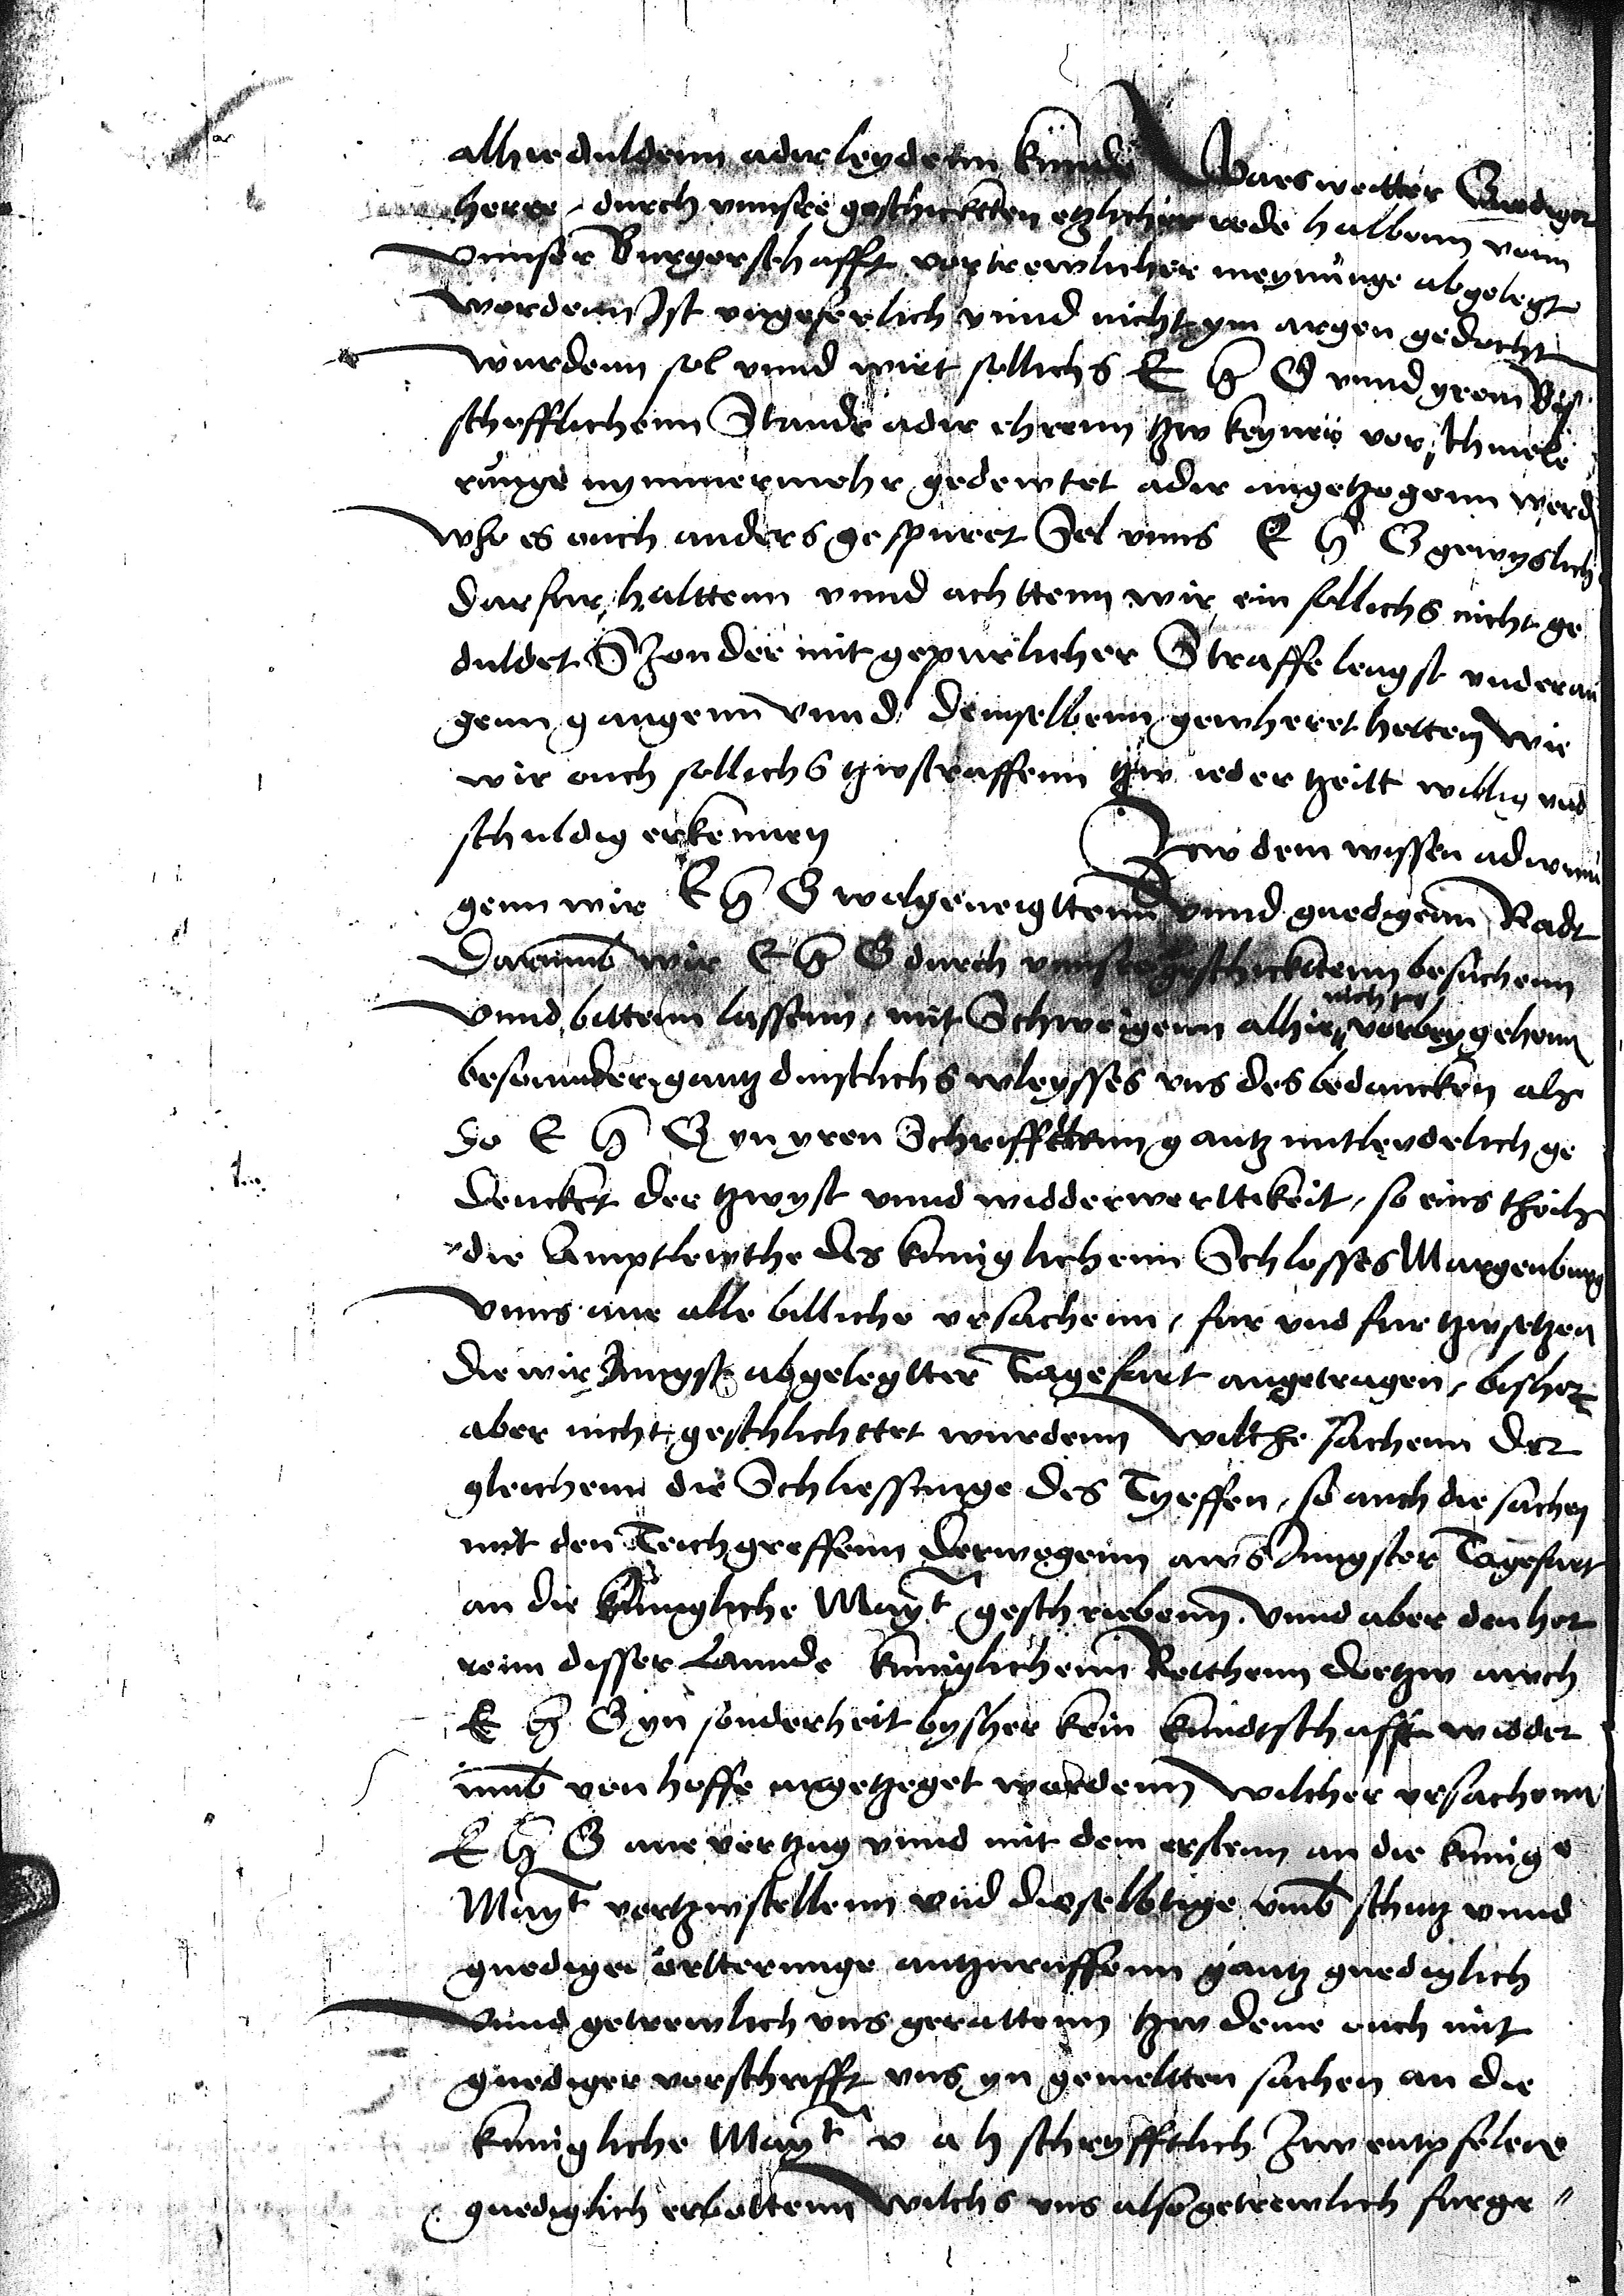 alhie duldenn adir leydenn kunde Was weitter Gnediger
herre, durch vnnsre geschickten etzlicher rede halbenn vonn
vnnser Burgerschafft vortrewlicher meynunge abgelegt
wordenn Ist vngeferlich vnnd nicht ym argen gedocht
wurdenn sol vnnd wirt sollichs E H G vnnd yrem Bis
schofflichenn Stande adir ehrenn tzw keyner vorschmele
runge nymmermehr gedewtet adir angetzogenn werd
who es ouch anders gespuret Sol vnns E H G gewyslich
darfur halttenn vnnd achttenn wir ein sollichs nicht ge
duldet Szonder mit gepurlicher Straffe lengst vnderau
genn gangenn vnnd demselbenn gewheret hetten wie
wir ouch sollichs tzwstraffenn tzw ieder tzeitt willig vnd
schuldig erkennen Zcw dem wissen adir mu
genn wir E H G wolgeneigttenn vnnd gnedigenn Radt
Darumb wir E H G durch vnnsre geschicktenn besuchenn
nicht
vnnd bittenn lassenn, mit Schweigenn alhir vorbey gehenn
besonnder gantz dinstlichs vleysses vns des bedancken als
So E H G yn yren Schrifftenn gantz mitleydelich ge
dencket der tzwyst vnnd widderwerttikeit, so eins theils
die Amptlewthe des kuniglichenn Schlosses Margenburg
vnns ane alle billiche vrsachenn, fur vnd fur tzwsetzen
die wir Jungst abgelegtter Tagefart angetragen, bisher
aber nicht geschlichttet wurdenn wilche sachenn der
gleichenn die Schliessunge des Tyeffen, so auch die sachen
mit den Teichgreffenn derwegenn aws Jungster Tagefart
an die kungliche Mayt geschriebenn vnnd aber den her
renn disser Lannde kuniglichenn Rethenn dortzw awch
E H G yn sonderheit bysher kein kundtschafft widder
vmb von hoffe angetzeget wordenn wilcher vrsachenn
E H G ane vortzug vnnd mit dem erstenn an die kunige
Mayt vortzwstellenn vnd dieselbtige vmb schutz vnnd
gnedige ortterunge antzuruffenn gantz gnediglich
vnnd getrewlich vns gerattenn tzw deme ouch mit
gnediger vorschrifft vns yn gemeltten sachen an die
kunigliche Mayt v a h schryfftlich Zuuentpfelenn
gnediglich erbottenn wilchs vns also getrewlich furge